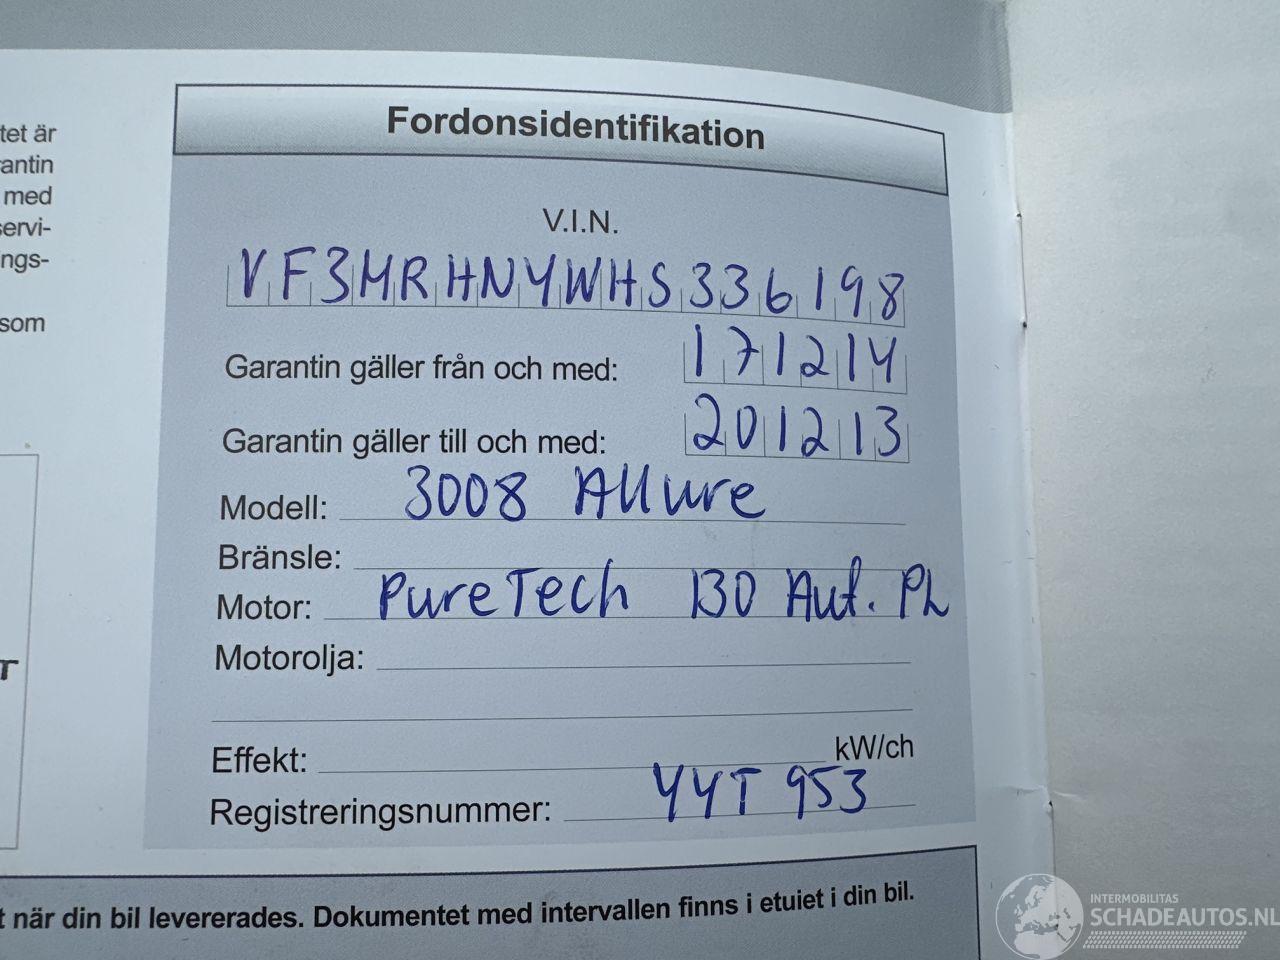 Fordonsidentifikation
V.I.N.
VF3MRHNYWHS336198
Garantin gäller från och med: 171214
Garantin gäller till och med: 201213
Modell: 3008 Allure
Bränsle:
Motor: PureTech 130 Aut. PL
Motorolja:
Effekt: kW/ch
Registreringsnummer: YYT 953
tet är
rantin
med
servi-
ngs-
som
T
t när din bil levererades. Dokumentet med intervallen finns i etuiet i din bil.
INTERMOBILITAS
SCHADEAUTOS.NL